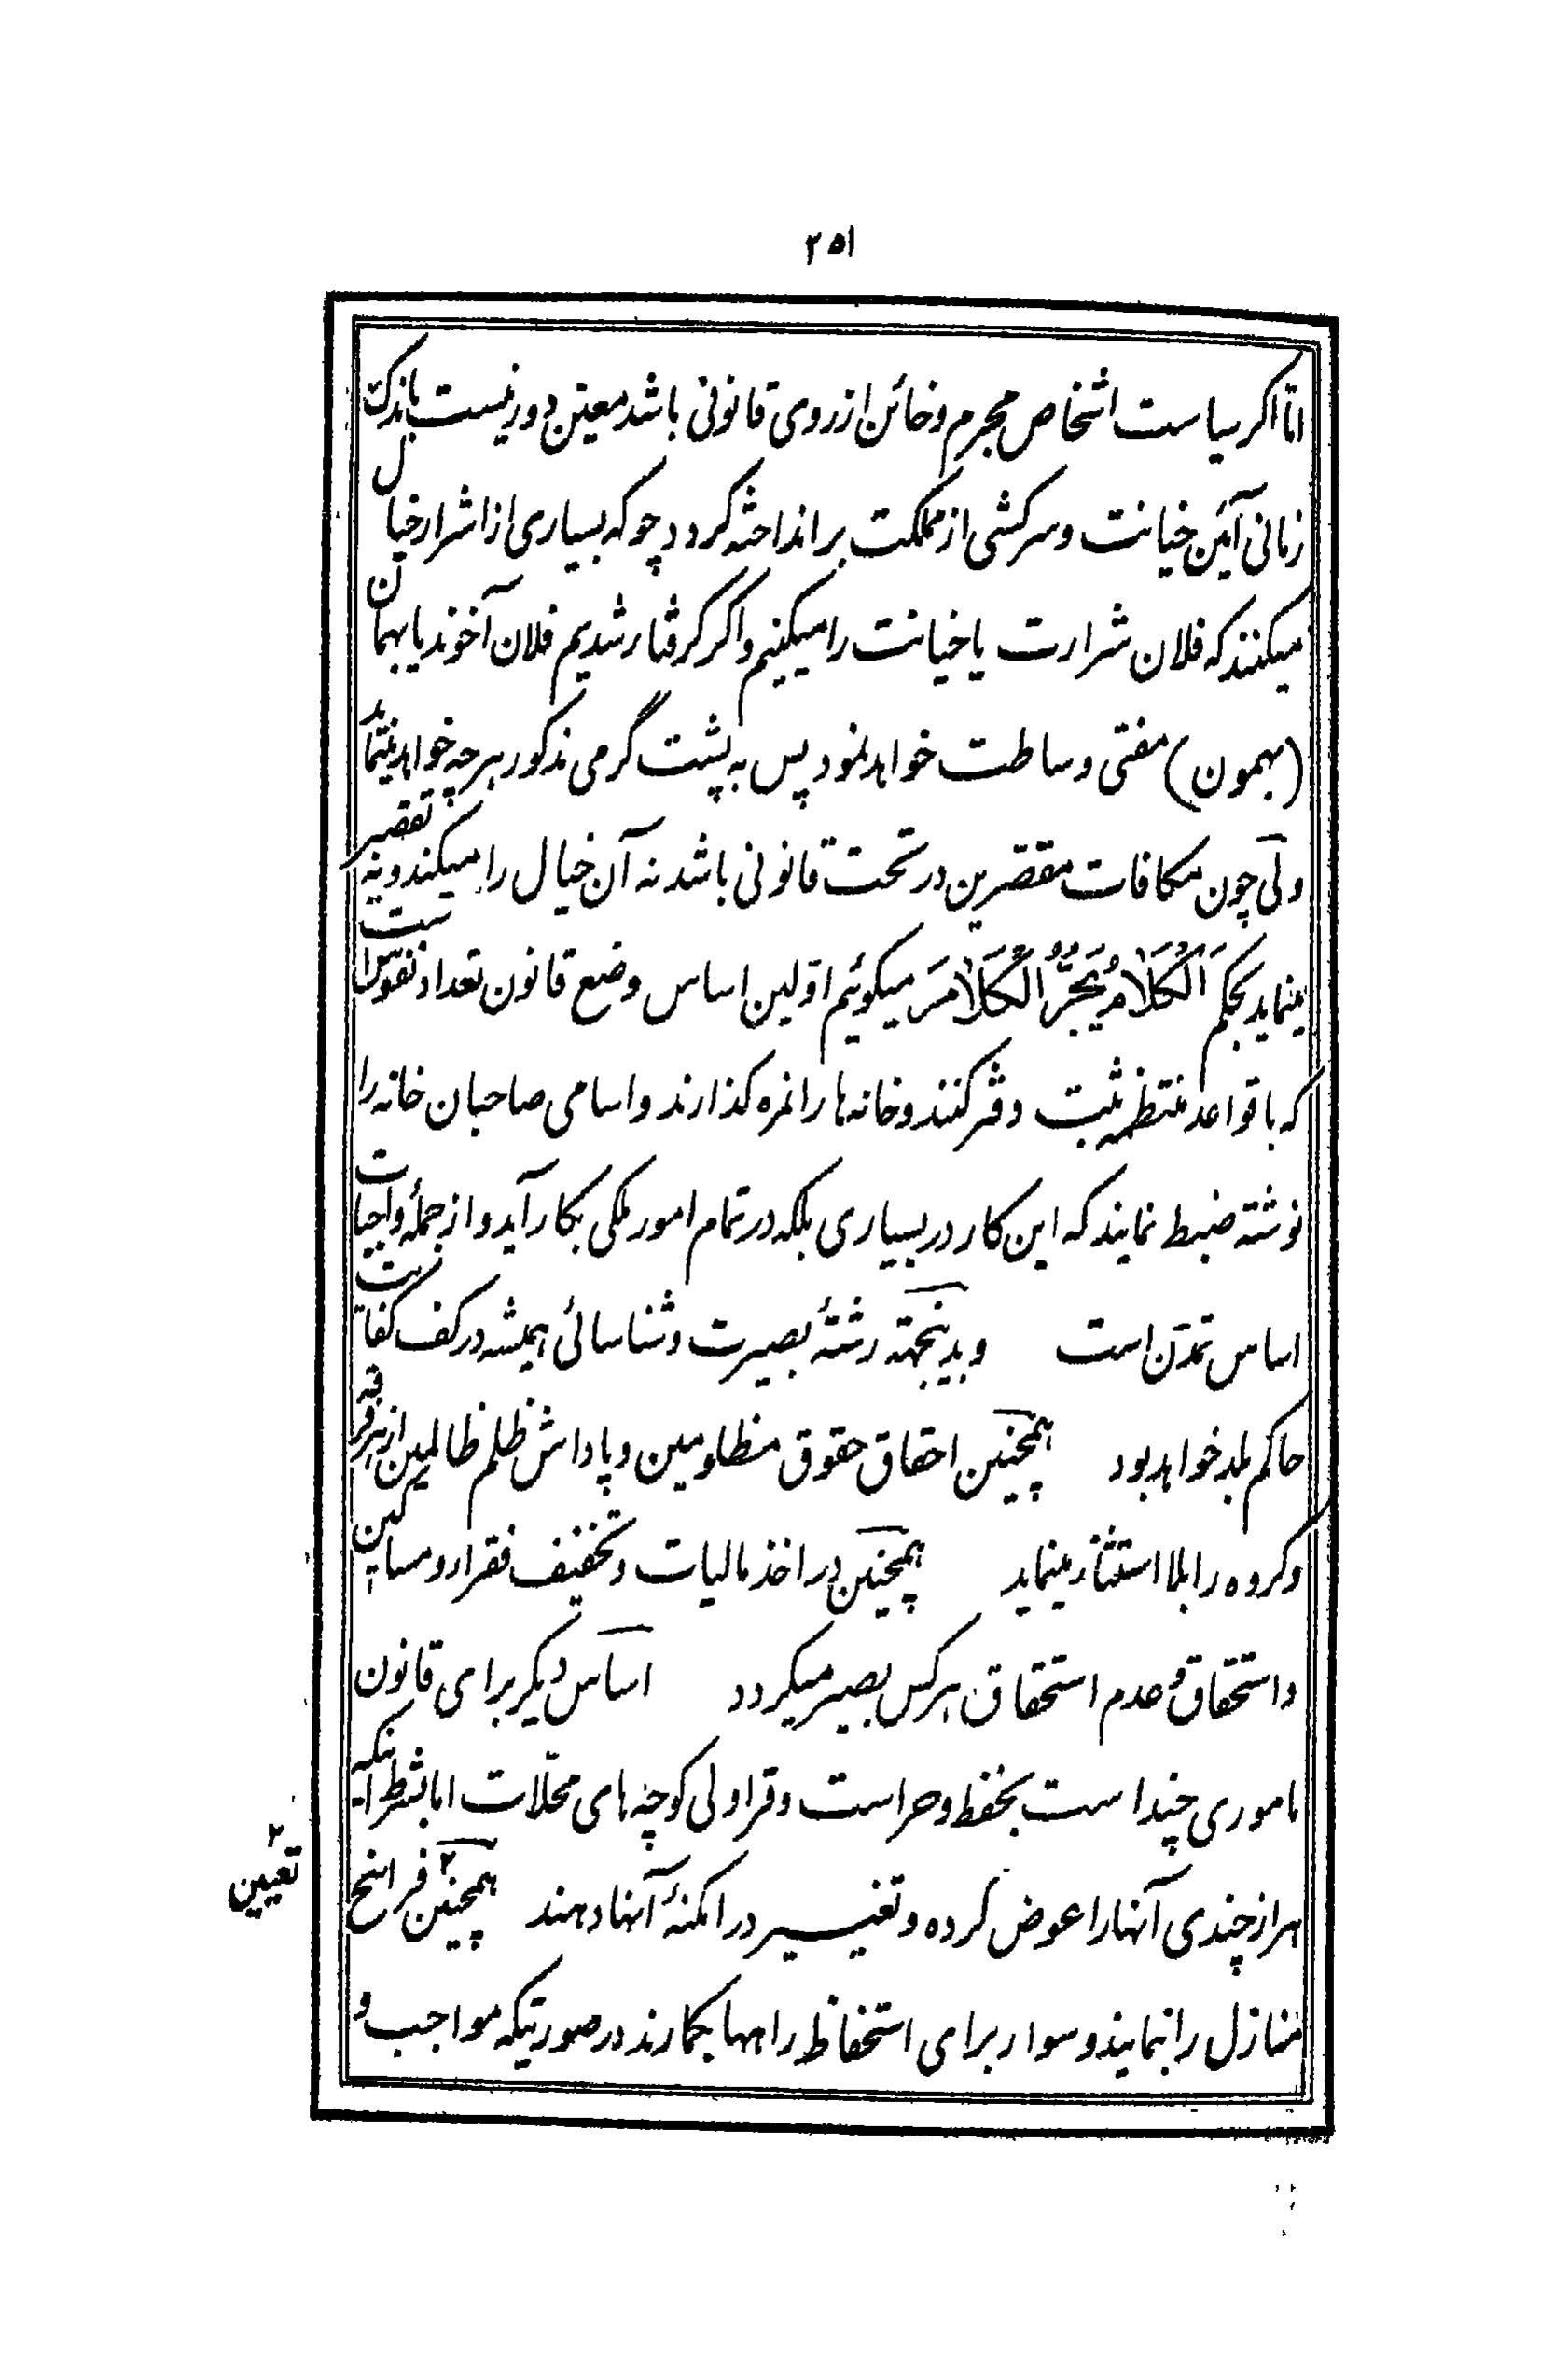 ۲۵۱
امّا اکر سیاست اشخاص مجرم و خائن از روی قانونی باشد معیّن دور نیست باندک
زمانی آئین خیانت و سرکشی از مملکت برانداخته کردد چو که بسیاری از اشرار خیال
میکنند که فلان شرارت یا خیانت را میکنیم و اکر کرفتار شدیم فلان آخوند یا بهمان
(بهمون) مفتی وساطت خواهد نمود پس به پشت گرمی مذکور هرچه خواهد مینماید
ولی چون مکافات مقصّرین در تحت قانونی باشد نه آن خیال را میکند و نه تقصیر
مینماید بحکم اَلْکَلامُ یَجُرُّ الْکَلامَ میکوئیم اوّلین اساس وضع قانون تعداد نفوس است
که با قواعد منتظمه ثبت دفتر کنند و خانه ها را نمره کذارند و اسامی صاحبان خانه را
نوشته ضبط نمایند که این کار در بسیاری بلکه در تمام امور ملکی بکار آید و از جملهٔ واجبات
اساس تمدّن است و بدینجهته رشتهٔ بصیرت و شناسائی همیشه در کف کفایت
حاکم بلد خواهد بود همچنین احقاق حقوق مظلومین و پاداش ظلم ظالمین از هر فرقه
و کروه را بلا استثناء مینماید همچنین در اخذ مالیات و تخفیف فقراء و مساکین
و استحقاق و عدم استحقاق هر کس بصیر میکردد اساس دیکر برای قانون
ماموری چند است بحفظ و حراست و قراولی کوچه های محلّات اما بشرط اینکه
هر از چندی آنها را عوض کرده و تغییر در امکنهٔ آنها دهند همچنین ۲ فراسخ
۲ تعیین
منازل را بنمایند و سوار برای استحفاظ راهها بکمارند در صورتیکه مواجب و